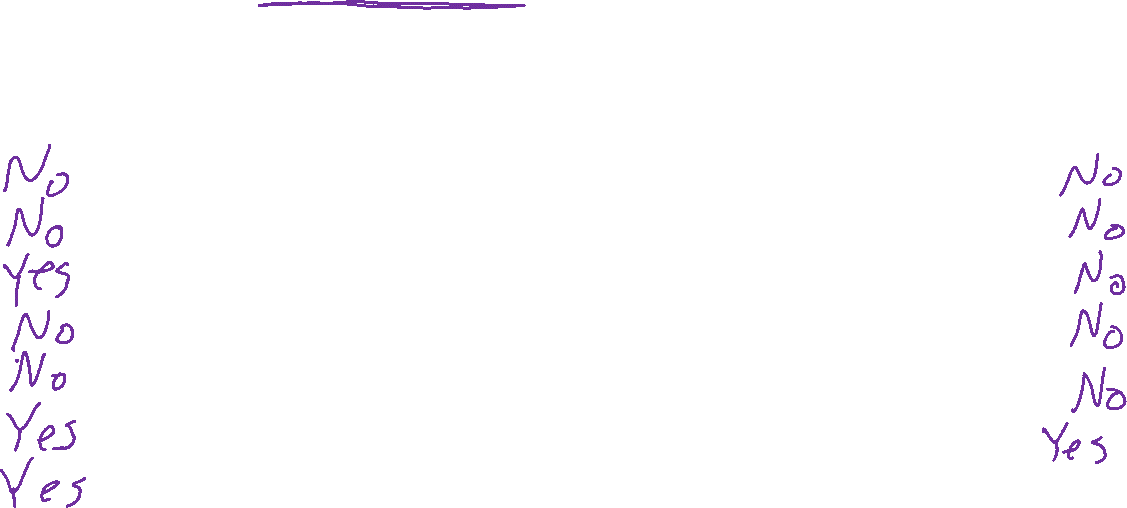 No
No
Yes
No
No
Yes
Yes
No
No
No
No
No
Yes